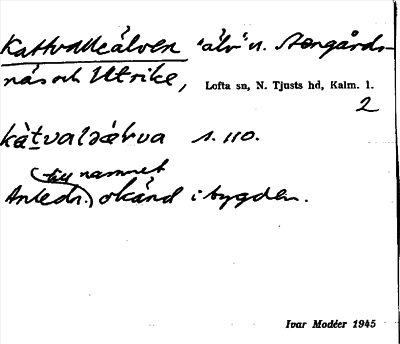 Kattvalleälven "älv" n. Stengårds-
näs och Utrike, Lofta sn, N. Tjusts hd, Kalm. l.
2
kàtvaləælva s. 110.
till namnet
Anledn. okänd i bygden.
Ivar Modéer 1945